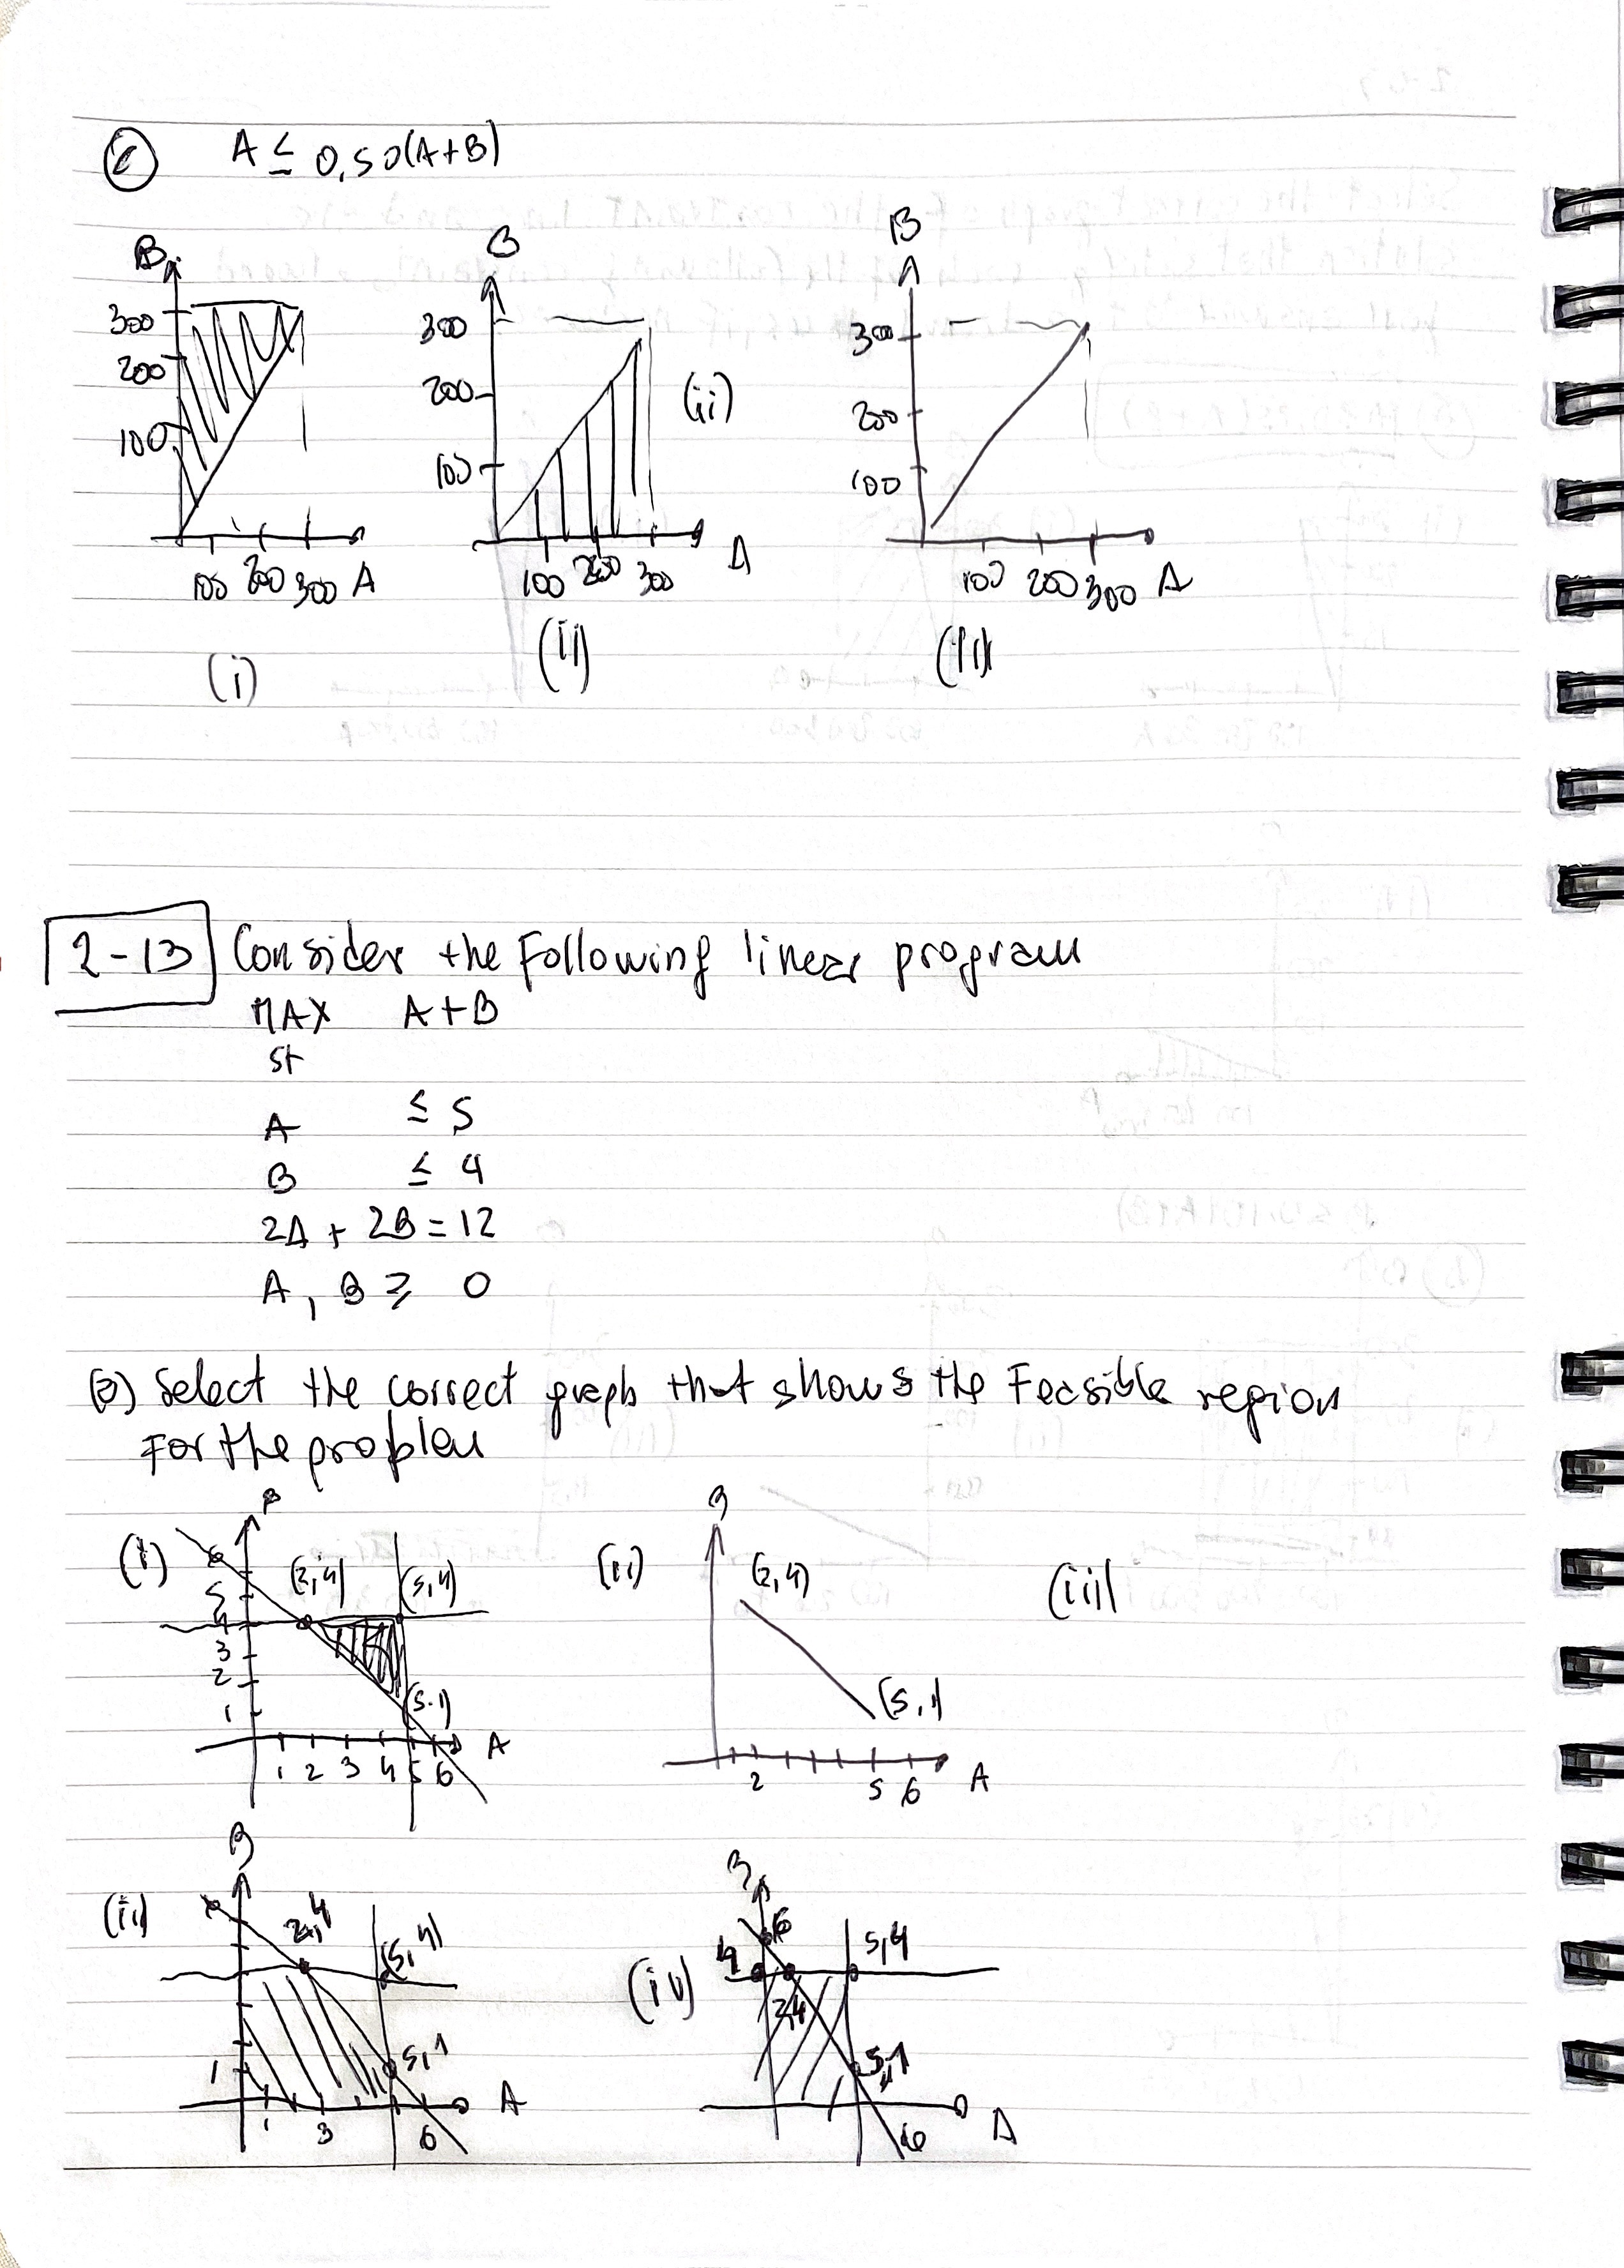 (c) A ≤ 0,50(A+B)
B B B
300 300 300
200 200 (ii) 200
100 100 100
100 200 300 A 100 200 300 A 100 200 300 A
(i) (ii) (iii)
2-13 Consider the Following linear program
MAX A+B
st
A ≤ 5
B ≤ 4
2A + 2B = 12
A, B ≥ 0
(a) Select the correct graph that shows the Feasible region
For the problem
(i) B (ii) B (iii)
6 (2,4) (5,4) (2,4)
5
4
3
2
1 (5,1) (5,1)
1 2 3 4 5 6 A 2 5 6 A
(iii) B (iv) B
2,4 (5,4) 4 6 5,4
2,4
1 5,1 5,1
1 3 6 A 6 A